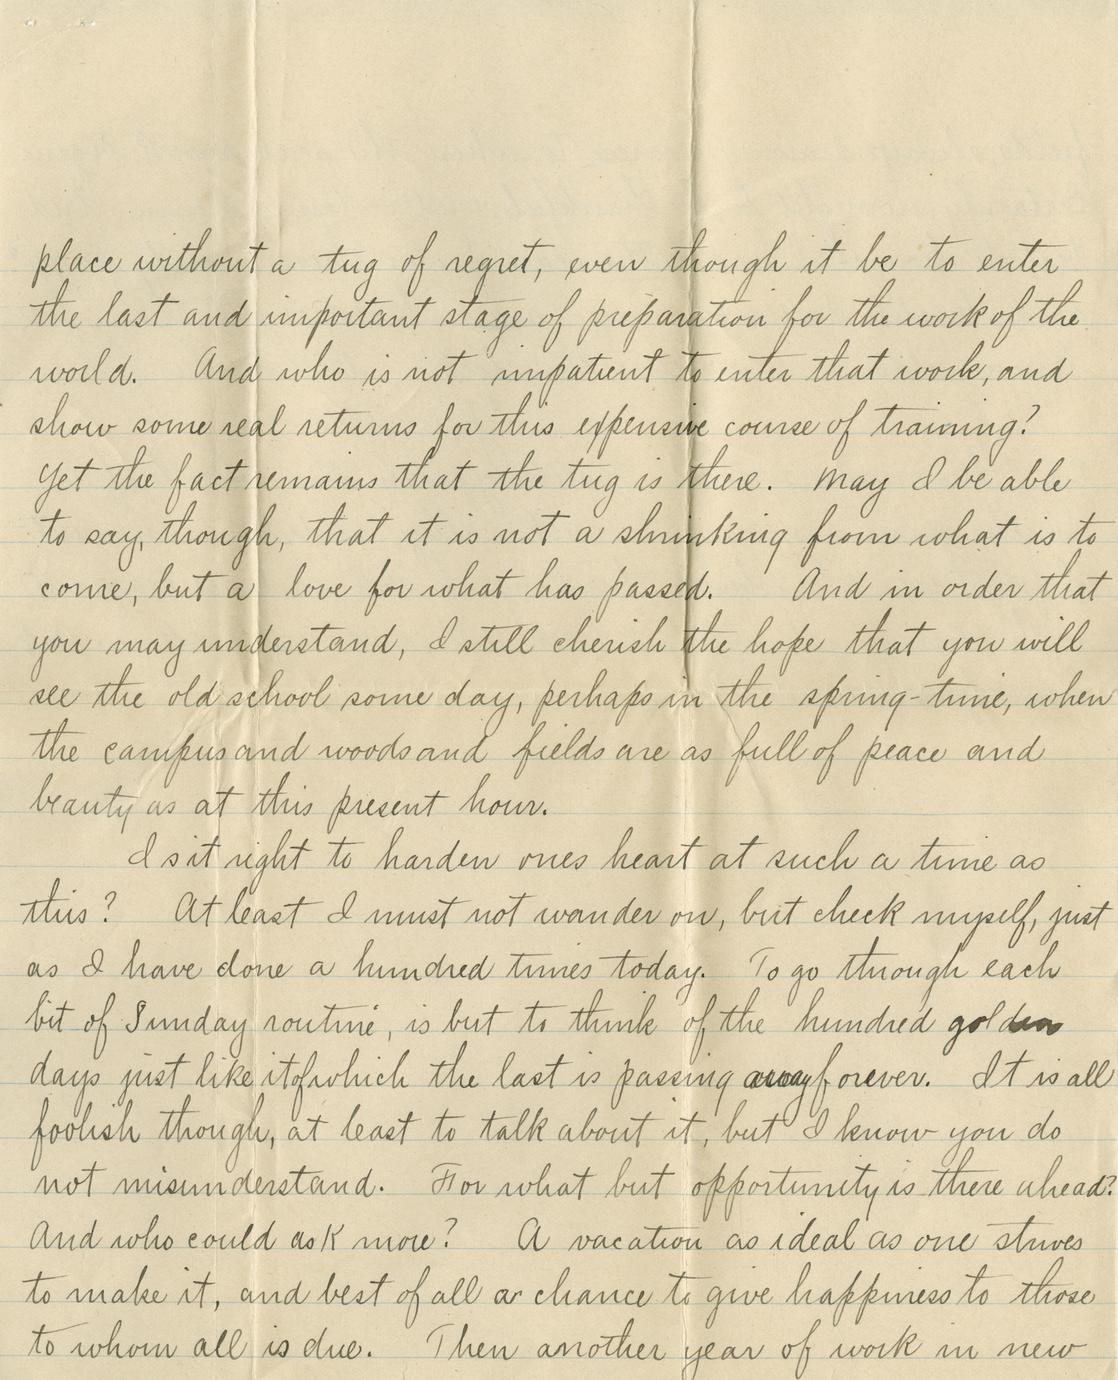 place without a tug of regret, even though it be to enter
the last and important stage of preparation for the work of the
world. And who is not impatient to enter that work, and
show some real returns for this expensive course of training?
Yet the fact remains that the tug is there. May I be able
to say, though, that it is not a shrinking from what is to
come, but a love for what has passed. And in order that
you may understand, I still cherish the hope that you will
see the old school some day, perhaps in the spring-time, when
the campus and woods and fields are as full of peace and
beauty as at this present hour.
Is it right to harden ones heart at such a time as
this? At least I must not wander on, but check myself, just
as I have done a hundred times today. To go through each
bit of Sunday routine, is but to think of the hundred golden
days just like it of which the last is passing away forever. It is all
foolish though, at least to talk about it, but I know you do
not misunderstand. For what but opportunity is there ahead?
And who could ask more? A vacation as ideal as one strives
to make it, and best of all a chance to give happiness to those
to whom all is due. Then another year of work in new